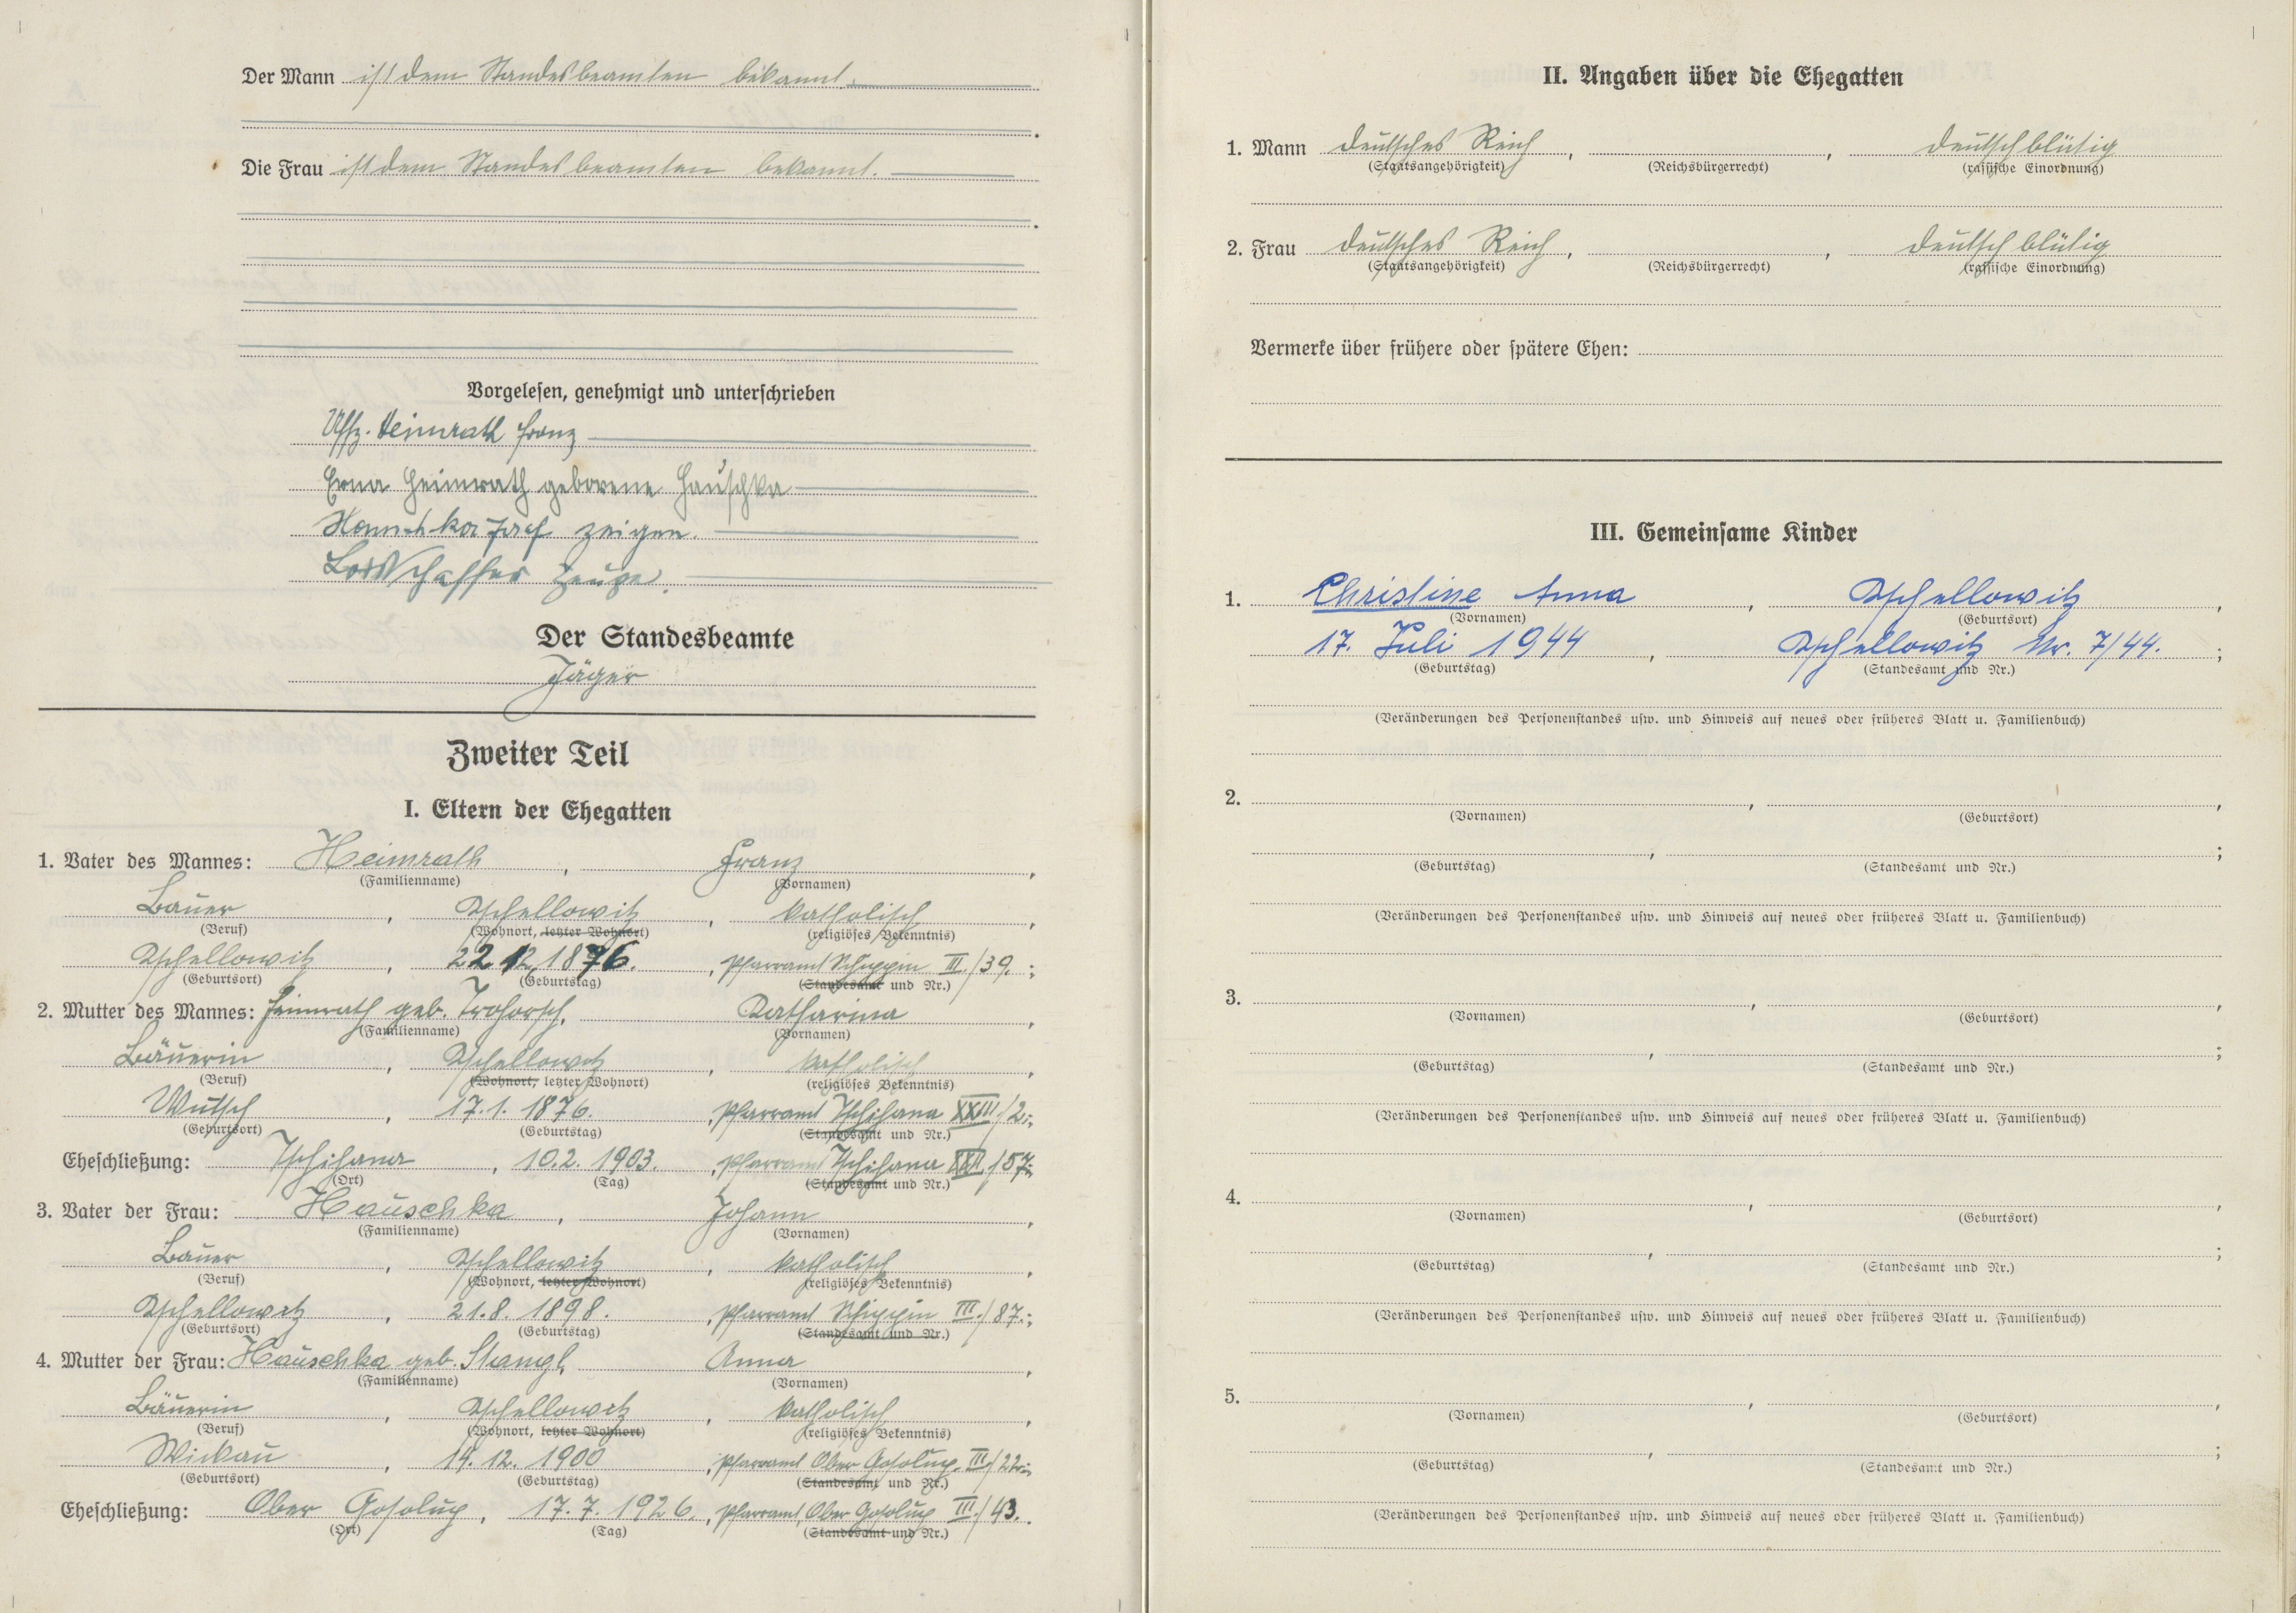 Der Mann ist dem Standesbeamten bekannt.
Die Frau ist dem Standesbeamten bekannt.
Vorgelesen, genehmigt und unterschrieben
Uffz. Heimrath Franz
Erna Heimrath geborene Hauschka
Josef
Zeuge.
Der Standesbeamte
Jäger
Zweiter Teil
I. Eltern der Ehegatten
1. Vater des Mannes: Heimrath, Franz,
(Familienname) (Vornamen)
Bauer, Tschellowitz, katholisch,
(Beruf) (Wohnort, letzter Wohnort) (religiöses Bekenntnis)
Tschellowitz, 22 12 1876., Pfarramt Schippin III./39.;
(Geburtsort) (Geburtstag) (Standesamt und Nr.)
2. Mutter des Mannes: Heimrath geb. Katharina,
(Familienname) (Vornamen)
Bäuerin, Tschellowitz, katholisch,
(Beruf) (Wohnort, letzter Wohnort) (religiöses Bekenntnis)
Wutsch, 17.1.1876., Pfarramt Tschihana XXIII./2.;
(Geburtsort) (Geburtstag) (Standesamt und Nr.)
Eheschließung: Tschihana, 10.2.1903., Pfarramt Tschihana /57.;
(Ort) (Tag) (Standesamt und Nr.)
3. Vater der Frau: Hauschka, Johann,
(Familienname) (Vornamen)
Bauer, Tschellowitz, katholisch,
(Beruf) (Wohnort, letzter Wohnort) (religiöses Bekenntnis)
Tschellowitz, 21.8.1898., Pfarramt Schippin III./87.;
(Geburtsort) (Geburtstag) (Standesamt und Nr.)
4. Mutter der Frau: Hauschka geb. Stangl, Anna,
(Familienname) (Vornamen)
Bäuerin, Tschellowitz, katholisch,
(Beruf) (Wohnort, letzter Wohnort) (religiöses Bekenntnis)
Wickau, 14.12.1900, Pfarramt Ober Gosolup III./22.;
(Geburtsort) (Geburtstag) (Standesamt und Nr.)
Eheschließung: Ober Gosolup, 17.7.1926., Pfarramt Ober Gosolup III./43.
(Ort) (Tag) (Standesamt und Nr.)
II. Angaben über die Ehegatten
1. Mann deutsches Reich, , deutschblütig
(Staatsangehörigkeit) (Reichsbürgerrecht) (rassische Einordnung)
2. Frau deutsches Reich, , deutschblütig
(Staatsangehörigkeit) (Reichsbürgerrecht) (rassische Einordnung)
Vermerke über frühere oder spätere Ehen:
III. Gemeinsame Kinder
1. Christine Anna, Tschellowitz,
(Vornamen) (Geburtsort)
17. Juli 1944, Tschellowitz Nr. 7/44.;
(Geburtstag) (Standesamt und Nr.)
(Veränderungen des Personenstandes usw. und Hinweis auf neues oder früheres Blatt u. Familienbuch)
2. , ,
(Vornamen) (Geburtsort)
, ;
(Geburtstag) (Standesamt und Nr.)
(Veränderungen des Personenstandes usw. und Hinweis auf neues oder früheres Blatt u. Familienbuch)
3. , ,
(Vornamen) (Geburtsort)
, ;
(Geburtstag) (Standesamt und Nr.)
(Veränderungen des Personenstandes usw. und Hinweis auf neues oder früheres Blatt u. Familienbuch)
4. , ,
(Vornamen) (Geburtsort)
, ;
(Geburtstag) (Standesamt und Nr.)
(Veränderungen des Personenstandes usw. und Hinweis auf neues oder früheres Blatt u. Familienbuch)
5. , ,
(Vornamen) (Geburtsort)
, ;
(Geburtstag) (Standesamt und Nr.)
(Veränderungen des Personenstandes usw. und Hinweis auf neues oder früheres Blatt u. Familienbuch)